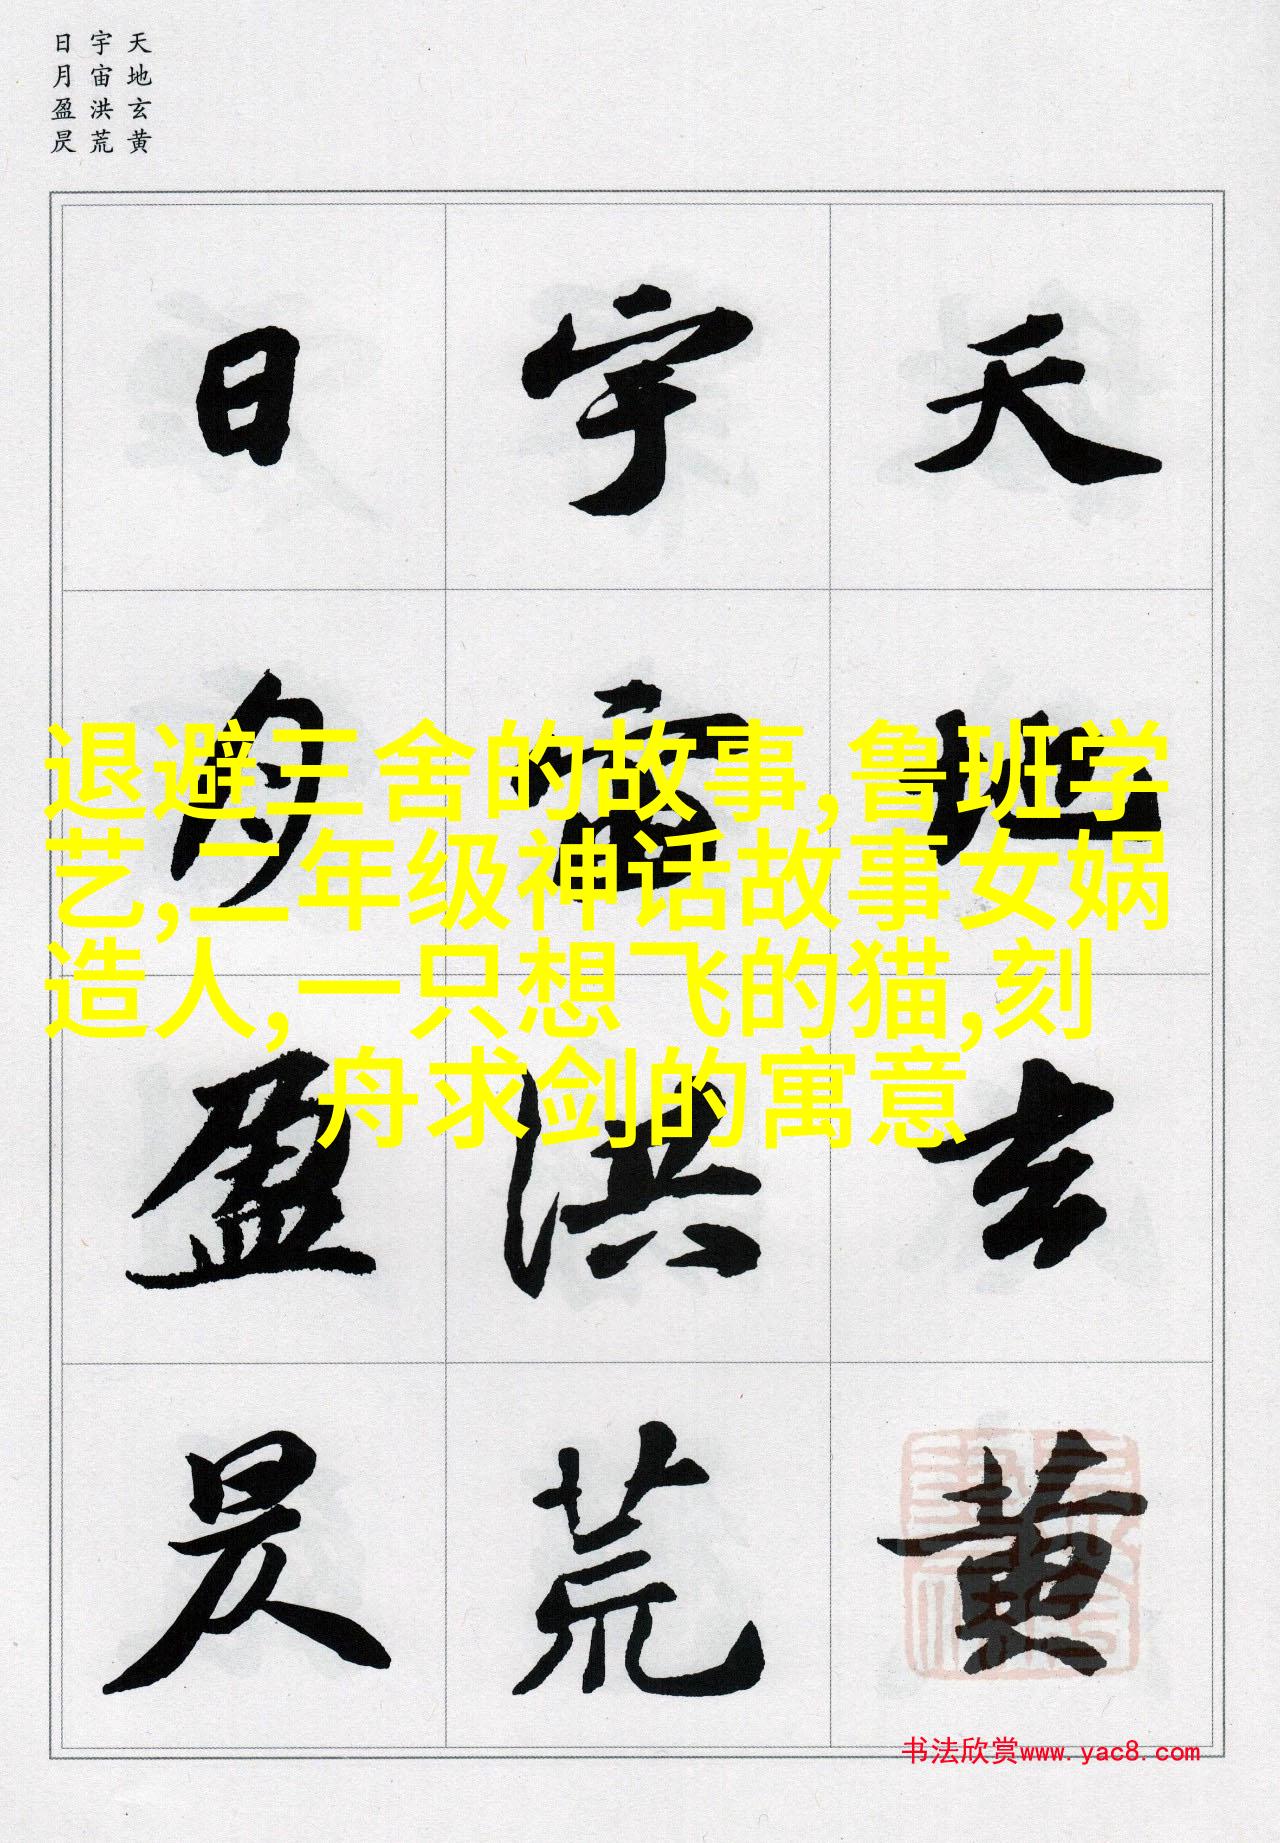 天地玄黄
宇宙洪荒
日月盈昃
天地玄黄
宇宙洪荒
日月盈昃
退避三舍的故事,鲁班学
艺,二年级神话故事女娲
造人,一只想飞的猫,刻
舟求剑的寓意
书法欣赏www.yac8.com